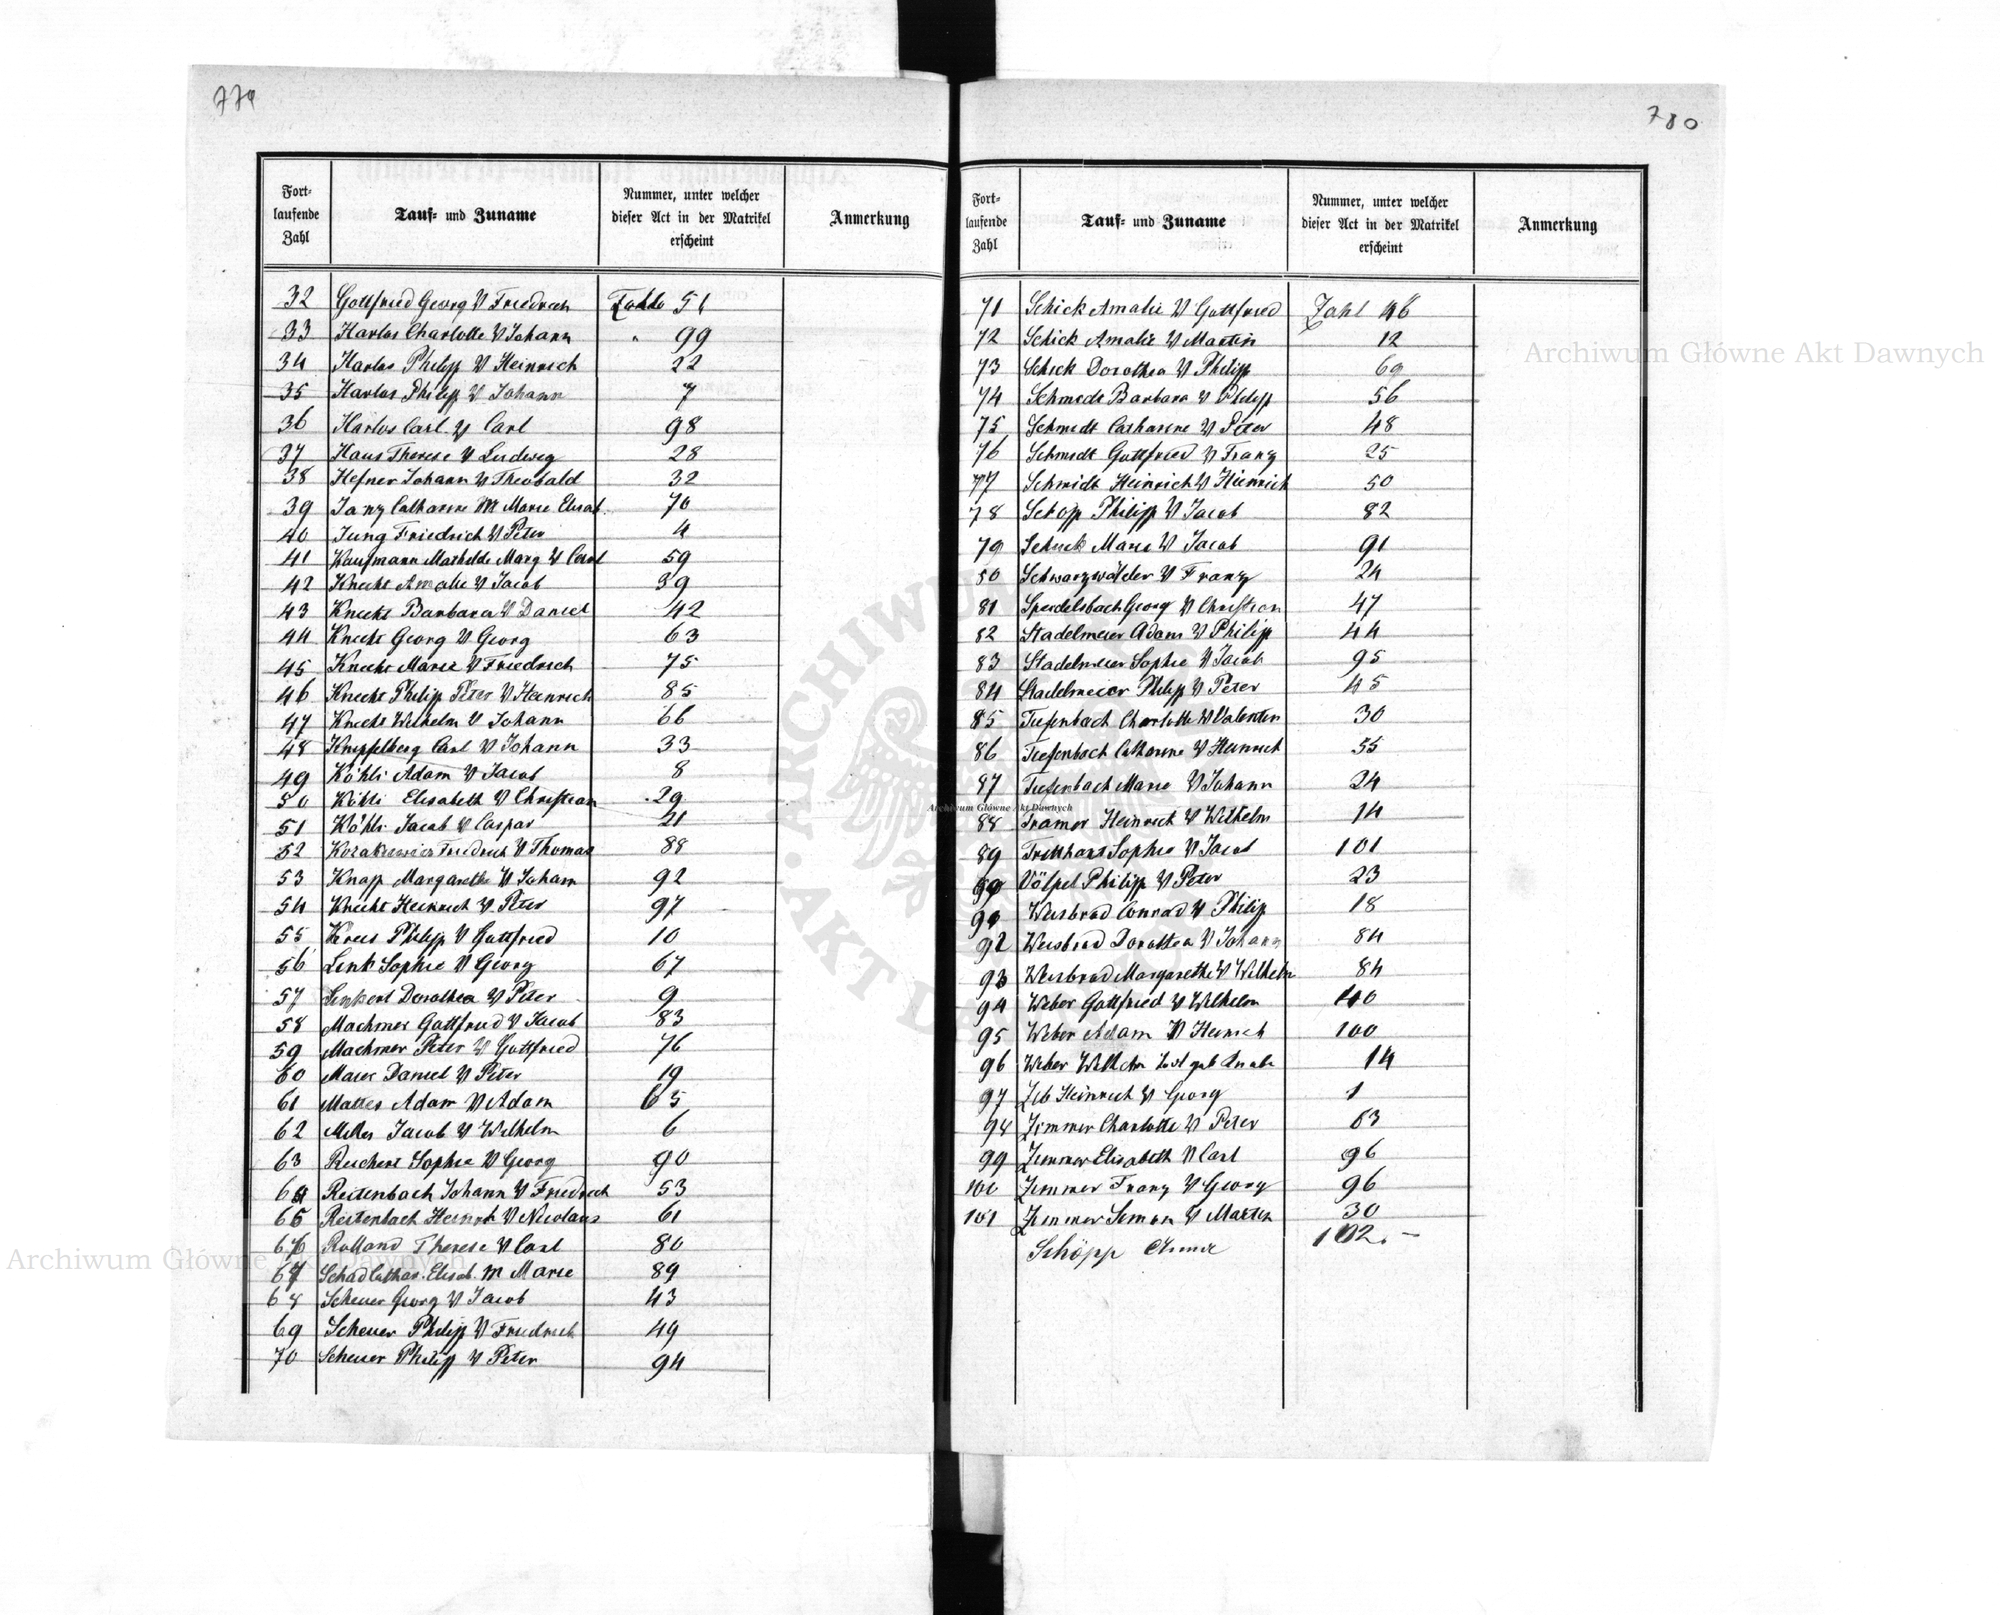 779
Fort-
laufende
Zahl
Tauf- und Zuname
Nummer, unter welcher
dieser Act in der Matrikel
erscheint
Anmerkung
32 Gottfried Georg V Friedrich Zahl 51
33 Harlos Charlotte V Johann " 99
34 Harlos Philipp V Heinrich 22
35 Harlos Philipp V Johann 7
36 Harlos Carl V Carl 98
37 Haus Therese V Ludwig 28
38 Hefner Johann V Theobald 32
39 Janz Catharine M Marie Elisab. 70
40 Jung Friedrich V Peter 4
41 Kaufmann Mathilde Marg V Carl 59
42 Knecht Amalie V Jacob 39
43 Knecht Barbara V Daniel 42
44 Knecht Georg V Georg 63
45 Knecht Marie V Friedrich 75
46 Knecht Philipp Peter V Heinrich 85
47 Knecht Wilhelm V Johann 66
48 Knipfelberg Carl V Johann 33
49 Köhli Adam V Jacob 8
50 Köhli Elisabeth V Christian 29
51 Köhli Jacob V Caspar 21
52 Kozakiewicz Friedrich V Thomas 88
53 Knap Margarethe V Johann 92
54 Knecht Heinrich V Peter 97
55 Kreis Philipp V Gottfried 10
56 Link Sophie V Georg 67
57 Dorothea V Peter 9
58 Machmer Gottfried V Jacob 83
59 Machmer Peter V Gottfried 76
60 Maier Daniel V Peter 19
61 Mattes Adam V Adam 65
62 Miller Jacob V Wilhelm 6
63 Reichert Sophie V Georg 90
64 Reitenbach Johann V Friedrich 53
65 Reitenbach Heinrich V Nicolaus 61
66 Rolland Therese V Carl 80
67 Schad Cathar. Elisab. M Marie 89
68 Scheuer Georg V Jacob 43
69 Scheuer Philipp V Friedrich 49
70 Scheuer Philipp V Peter 94
780
Fort-
laufende
Zahl
Tauf- und Zuname
Nummer, unter welcher
dieser Act in der Matrikel
erscheint
Anmerkung
71 Schick Amalie V Gottfried Zahl 46
72 Schick Amalie V Martin 12
73 Schick Dorothea V Philipp 69
74 Schmidt Barbara V Philipp 56
75 Schmidt Catharine V Peter 48
76 Schmidt Gottfried V Franz 25
77 Schmidt Heinrich V Heinrich 50
78 Schopp Philipp V Jacob 82
79 Schuck Marie V Jacob 91
80 Schwarzwälder V Franz 24
81 Speidelsbach Georg V Christian 47
82 Stadelmeier Adam V Philipp 44
83 Stadelmeier Sophie V Jacob 95
84 Stadelmeier Philipp V Peter 45
85 Tiefenbach Charlotte V Valentin 30
86 Tiefenbach Catharine V Heinrich 55
87 Tiefenbach Marie V Johann 24
88 Tramer Heinrich V Wilhelm 14
89 Sophie V Jacob 101
90 Völpel Philipp V Peter 23
91 Weisbrod Conrad V Philipp 18
92 Weisbrod Dorothea V Johann 84
93 Weisbrod Margarethe V Wilhelm 84
94 Weber Gottfried V Wilhelm 40
95 Weber Adam V Heinrich 100
96 Weber Wilhelm todt geb Knabe 14
97 Zeb Heinrich V Georg 1
98 Zimmer Charlotte V Peter 63
99 Zimmer Elisabeth V Carl 96
100 Zimmer Franz V Georg 96
101 Zimmer Simon V Martin 30
Schöpp Anna 102. –
Archiwum Główne Akt Dawnych
Archiwum Główne Akt Dawnych
Archiwum Główne Akt Dawnych